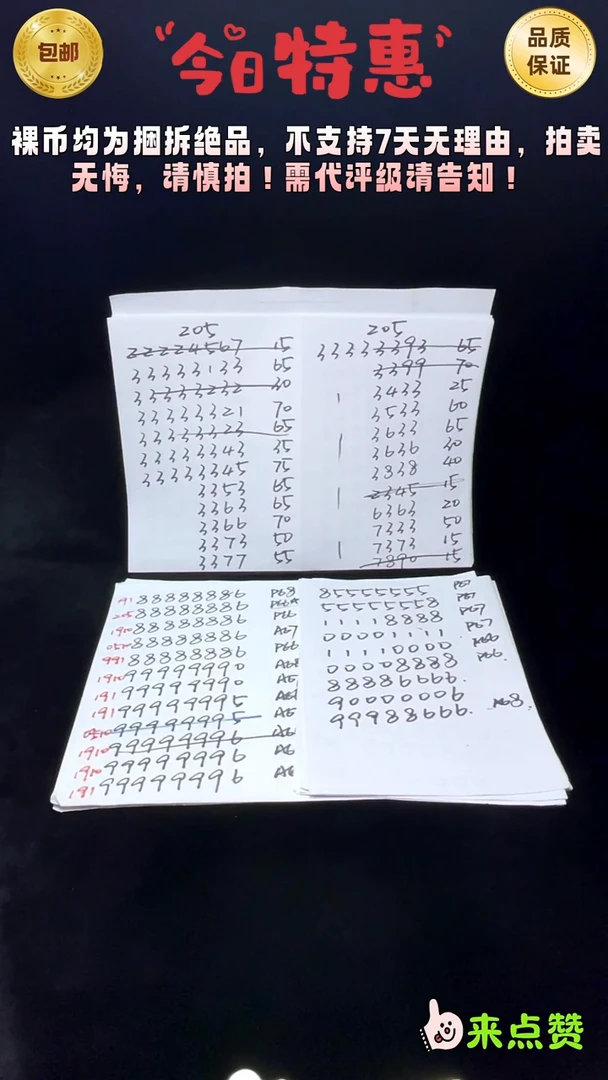 包邮
今日特惠
品质
保证
裸币均为捆拆绝品，不支持7天无理由，拍卖
无悔，请慎拍！需代评级请告知！
205
22224567 15
33333133 65
33333232 30
33333321 70
33333323 65
33333343 35
33333345 75
3353 65
3363 65
3366 70
3373 50
3377 55
205
33333393 65
3399 70
3433 25
3533 60
3633 65
3636 30
3838 40
2345 15
6363 20
7333 50
7373 15
7890 15
191 88888886 P68
205 88888886
1910 88888886
0510 88888886 A67
991 88888886 P66
1910 99999990 A68
191 99999990
191 99999995
0510 99999995
1910 99999996
1910 99999996
191 99999996
85555555
55555558 P67
11118888 P67
00001111 P67
11110000 A66
00008888 P66
88886666
90000006
99988666 A68
来点赞